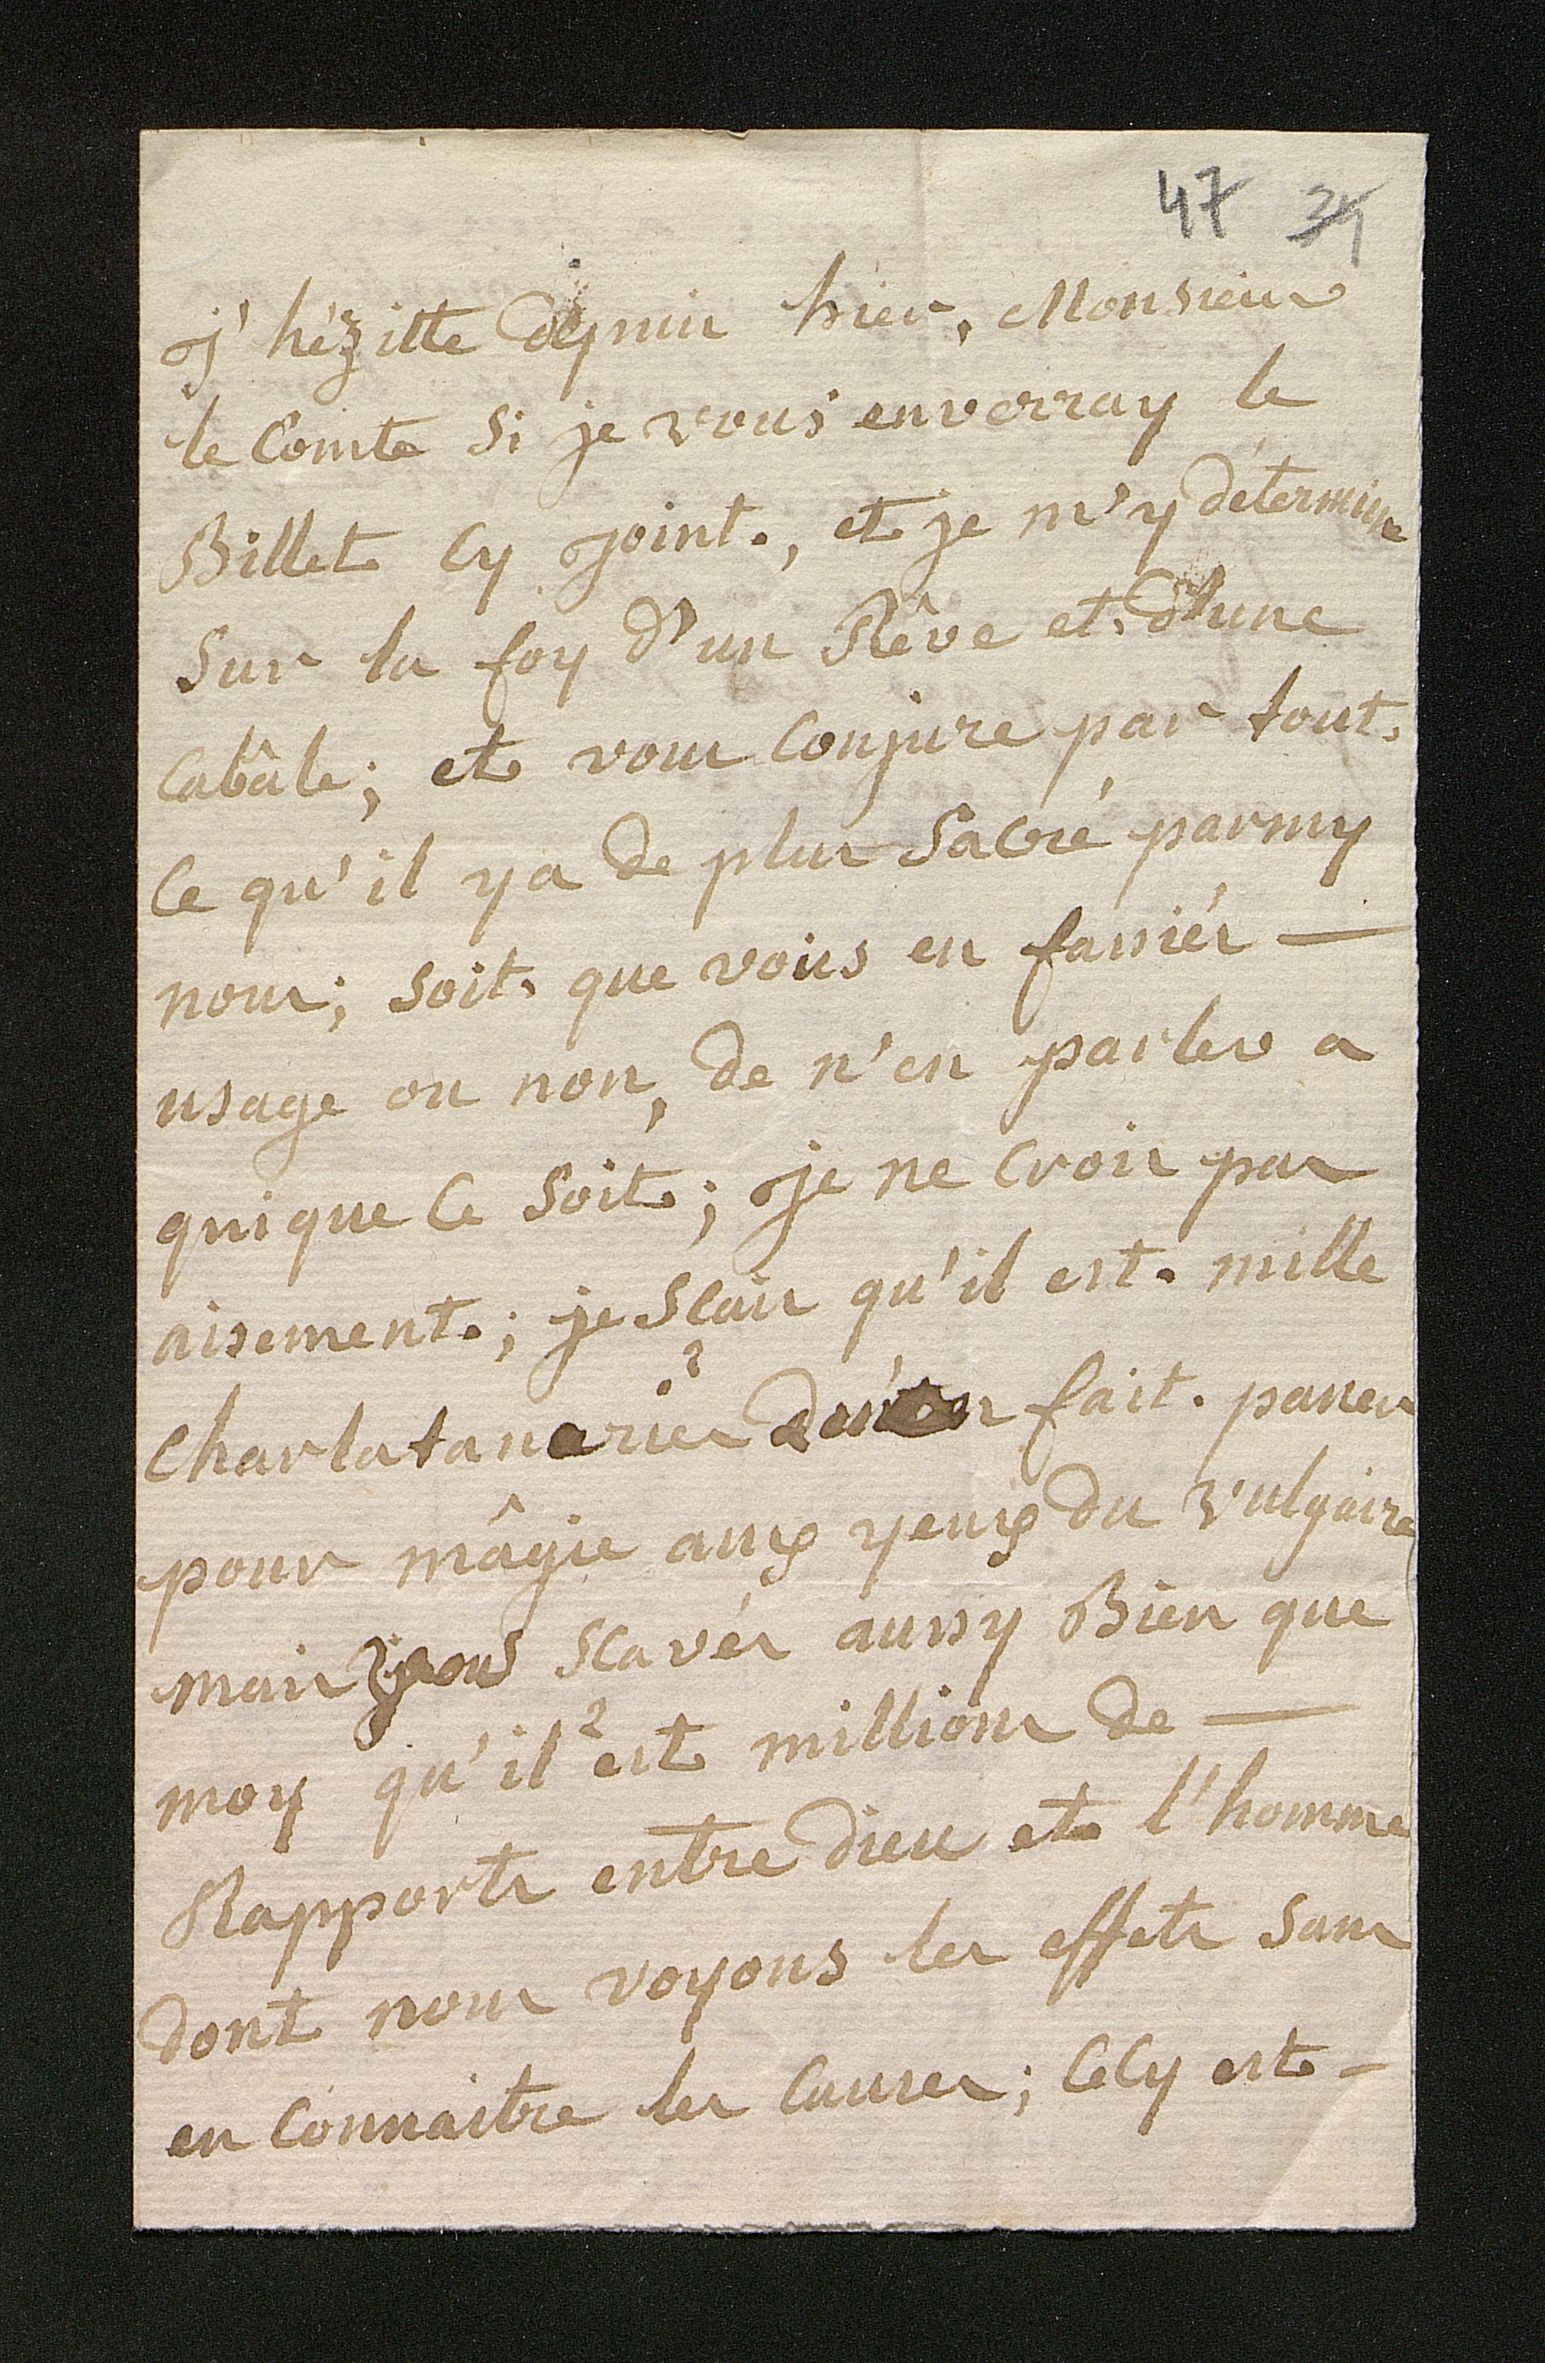 47 34
j'hézitte depuis hier, Monsieur
le Comte si je vous enverray le
Billet cy joint, et je m'y détermine
sur la foy d'un Rêve et d'une
cabâle; et vous conjure par tout
ce qu'il ya de plus sacré parmy
nous; soit que vous en fassiés —
usage ou non, de n'en parler a
qui que ce soit; je ne crois pas
aisement; je sçais qu'il est mille
charlataneries qu'on fait passer
pour mâgie aux yeux du vulgaire
mais vous sçavés aussy Bien que
moy qu'il est millions de —
Rapports entre dieu et l'homme
dont nous voyons les effets sans
en connaitre les causes; cecy est —